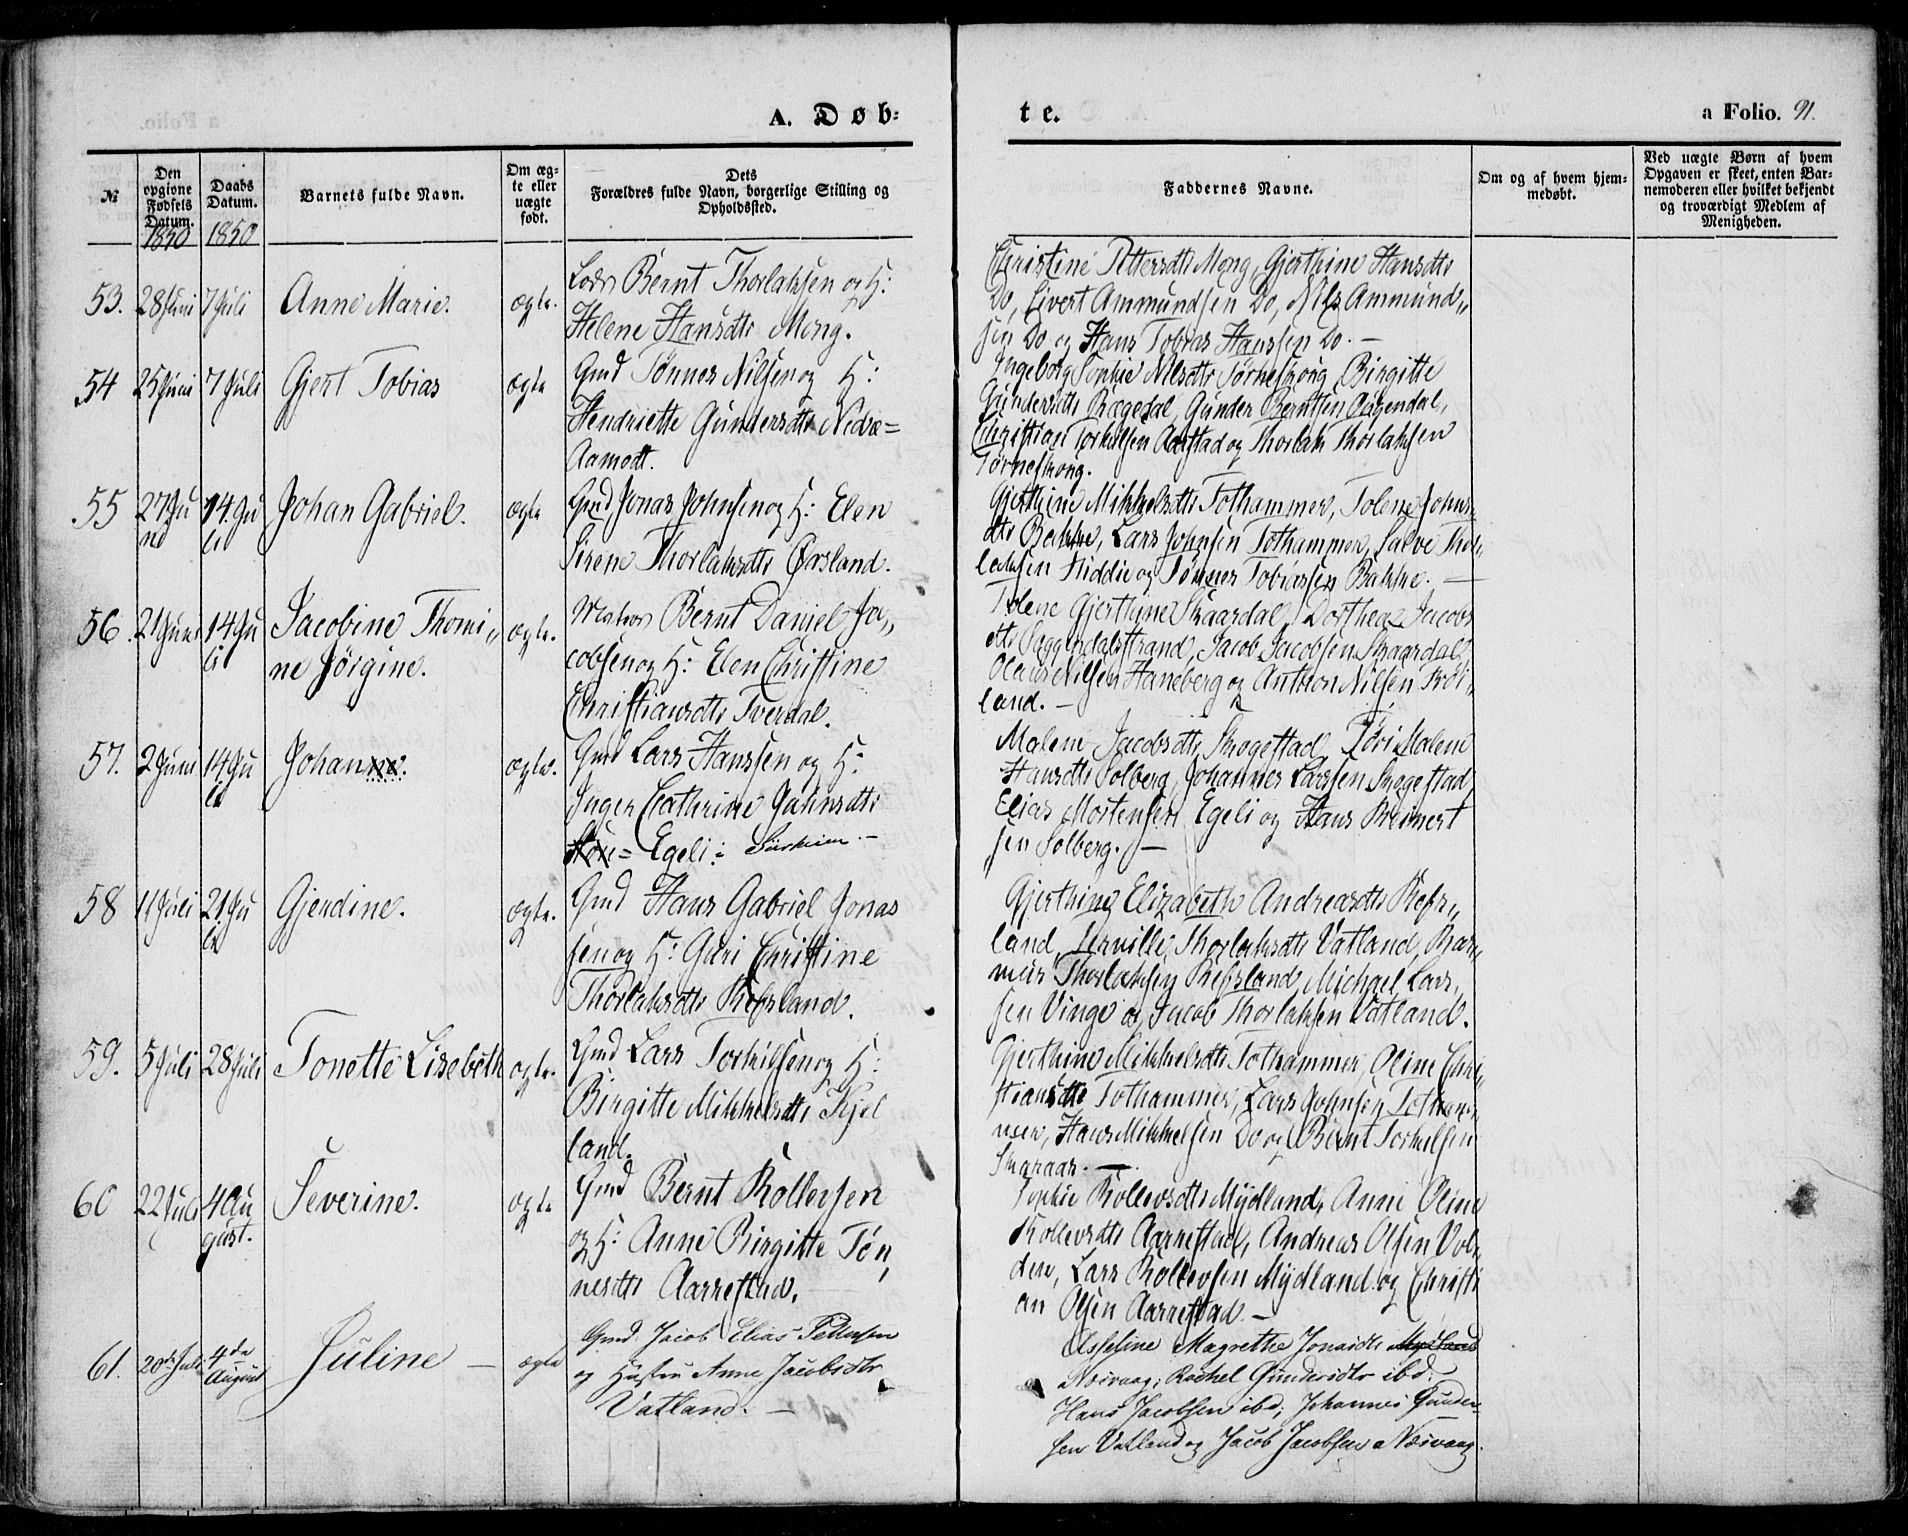 A. Døb-
te.
a Folio. 91.
№
Den
opgivne
Fødsels
Datum.
1850
Daabs
Datum.
1850
Barnets fulde Navn.
Om æg-
te eller
uægte
født.
Dets
Forældres fulde Navn, borgerlige Stilling og
Opholdssted.
Faddernes Navne.
Om og af hvem hjem-
medøbt.
Ved uægte Børn af hvem
Opgaven er skeet, enten Bar-
nemoderen eller hvilket bekjendt
og troværdigt Medlem af
Menigheden.
53. 28 Juni 7 Juli Anne Marie. ægte.
Lods Bernt Thorlaksen og H:
Helene Hansdtr Mong.
Christine Pettersdtr Mong, Gjerthine Hansdtr
Do, Sivert Ammundsen Do, Nils Ammund„
sen Do og Hans Tobias Hanssen Do. –
54 25 Juni 7 Juli Gjert Tobias ægte
Gmd Tønnes Nilsen og H:
Henriette Gundersdtr Nedre=
Aamodt.
Ingeborg Sophie Nilsdtr Tørnestrong, Birgitte
Gundersdtr Rægedal, Gunder Berntsen
Christian Torkelsen Aarstad og Thorlak Thorlaksen
Tørnestrong.
55 27 Ju
ni
14 Ju
li
Johan Gabriel. ægte
Gmd Jonas Johnsen og H: Elen
Sirene Thorlaksdtr Ørsland.
Gjerthine Mikkelsdtr Tothammer, Tolene Johns
dtr Bakke, Lars Johnsen Tothammer, Salve Thor„
laksen Middie og Tønnes Tobiassen Bakke. –
56. 21 Juni 14 Ju
li
Jacobine Thomi„
ne Jørgine.
ægte.
Matros Bernt Daniel Ja„
cobsen og H: Elen Christine
Christiansdtr Tverdal.
Tolene Gjerthine Skaardal, Dorthea Jacobs
dtr Soggendalsstrand, Jacob Jacobsen Skaardal,
Olaus Nilsen Haneberg og Antoon Nilsen Frøi„
land. –
57. 2 Juni 14 Ju
li
Johanne. ægte.
Gmd Lars Hanssen og H:
Inger Cathrine Jahnsdtr
Egeli:
Malene Jacobsdtr Skogestad, Tøri Malene
Hansdtr Solberg, Johannes Larssen Skogestad,
Elias Mortensen Egeli og Hans Reinert
sen Solberg. –
58 11 Juli 21 Ju
li
Gjerdine. ægte.
Gmd Hans Gabriel Jonas
sen og H: Guri Christine
Thorlaksdtr Refsland.
Gjerthine Elizabeth Andreasdtr Refs„
land, Serville Thorlaksdtr Vatland, Ras„
mus Thorlaksen Refsland, Michael Lars„
sen Vinge og Jacob Thorlaksen Vatland.
59. 5 Juli 28 Juli Tonette Lisebeth ægte.
Gmd Lars Torkilsen og H:
Birgitte Mikkelsdtr Kjel
land.
Gjerthine Mikkelsdtr Tothammer, Oline Chri„
stiansdtr Tothammer, Lars Johnsen Totham„
mer, Hans Mikkelsen Do og Bernt Torkelsen
Skaraas. –
60 22 Juli 4 Au
gust.
Severine. ægte
Gmd Bernt Rollevsen
og H: Anne Birgitte Tøn„
nesdtr Aarrestad.
Sophie Rollevsdtr Mydland, Anne Oline
Rollevsdtr Aarrestad, Andreas Olsen Vol„
den, Lars Rollevsen Mydland og Christi
an Olsen Aarrestad –
61. 20de Juli 4de
August
Juline – ægte
Gmd. Jacob Elias Pettersen
og Hustru Anne Jacobsdtr
Vatland. –
Asseline Magrethe Jonasdtr Mydland
Nesvaag; Rachel Gundersdtr ibd:
Hans Jacobsen ibd; Johannes Gunder-
sen Vatland og Jacob Jacobsen Nesvaag.